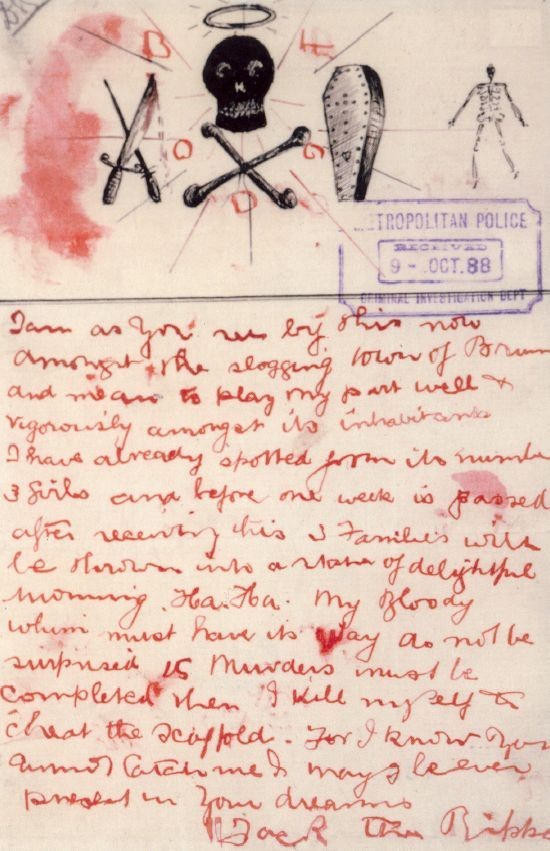 B
F
O
G
D
METROPOLITAN POLICE
RECEIVED
9 - OCT. 88
CRIMINAL INVESTIGATION DEPT
I am as you see by this now
amongst the slogging town of Brum
and mean to play my part well &
vigorously amongst its inhabitants
I have already spotted from its numbe
3 Girls and before one week is passed
after receiving this 3 Families will
be thrown into a state of delightful
mourning. Ha. Ha. My Bloody
whim must have its way do not be
surprised 15 Murders must be
completed then I kill myself to
cheat the scaffold. For I know you
cannot catch me & may I be ever
present in your dreams
Jack The Rippe